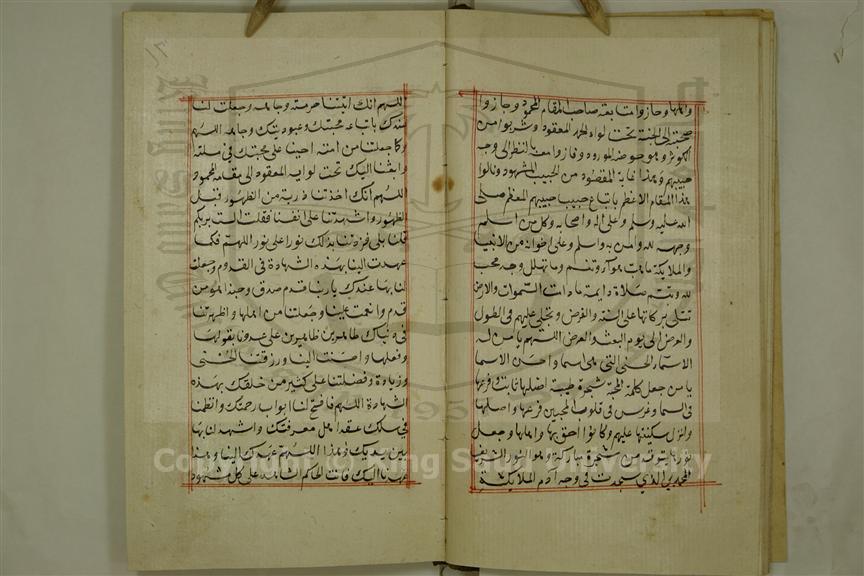 واهلها وحازوا متابعته صاحب المقام المحمود وجازوا
صحبته الى الجنة تحت لواء الحمد المعقود وشربوا من
الكوثر وهو حوضه المورود وفازوا معه بالنظر الى وجه
حبيبهم وهذا غاية المقصود من الحبيب المشهود ونالوا
هذا المقام الاعظم باتباع حبيب حبيبهم المعظم صلى
الله عليه وسلم وعلى اله واصحابه وكل من اسلم
وجهه لله وامن به واسلم وعلى اخوانه من الانبيا
والملايكة ما هب هوا ونسم وما تهلل وجه محب
لله وتبسم صلاة دايمة ما دامت السموات والارض
تتلى بركاتها على السنة والفرض وتجلى عليهم في الطول
والعرض الى يوم البعث والعرض اللهم يا من له
الاسماء الحسنى التي هي اسما واحسن الاسما
يا من جعل كلمة المحبة شجرة طيبة اصلها ثابت وفرعها
في السما وغرس في قلوب المحبين فرعها واصلها
وانزل سكينتها عليهم وكانوا احق بها واهلها وجعل
نورها يتوقد من شجرة مباركة وهو النور الشريف
المحمدي الذي سجدت في وجه ادم الملايكة
اللهم انك اتيتنا حرمته وجاهه وجعلت لنا
عندك باتباعه محبتك وعبوديتك وجاهه اللهم
وكما جعلتنا من امته احينا على محبتك في سلته
وابعثنا اليك تحت لوايه المعقود الى مقامه المحمود
اللهم انك اخذتنا ذرية من الظهور قبل
الظهور واشهدتنا على انفسنا فقلت الست بربكم
قلنا بلى فزدتنا بذلك نورا على نور اللهم فكما
عهدت الينا بهذه الشهادة في القدوم وجعلت
لنا بها عندك يا ربنا قدم صدق وحبذا هو من
قدم وانعمت علينا وجعلتنا من اهلها واظهرتنا
في دنياك طاهرين ظاهرين على عدونا بقولها
وفعلها واحسنت الينا ورزقتنا الحسنى
وزيادة وفضلتنا على كثير من خلقك بهذه
الشهادة اللهم فافتح لنا ابواب رحمتك وانظمنا
في سلك عقد اهل معرفتك واشهد لنا بها
بين يديك وهذا اللهم عهدك الينا وهذا
عهدنا اليك فانت الحاكم الشاهد على كل شهود
Copyright © King Saud University